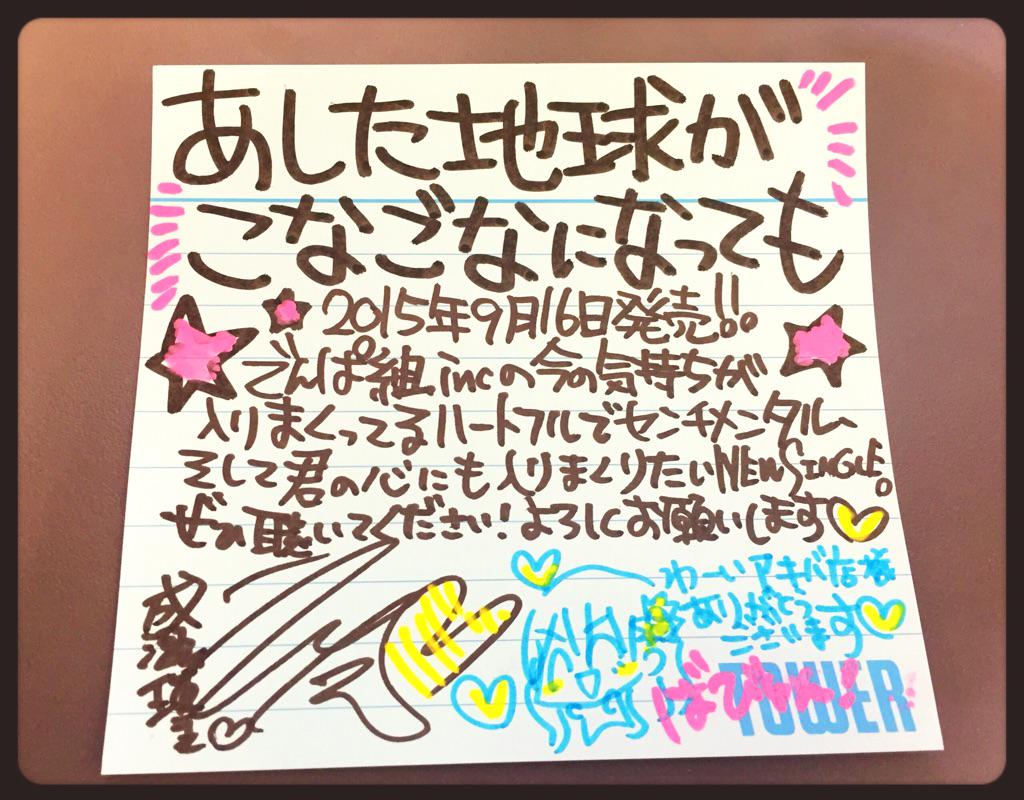 あした地球が
こなごなになっても
2015年9月16日発売!!
でんぱ組.incの今の気持ちが
入りまくってるハートフルでセンチメンタル、
そして君の心にも入りまくりたいNEW SINGLE。
ぜひ聴いてください!よろしくお願いします
成瀬瑛美
わーいアキバ店様
ありがとう
ございます
TOWER